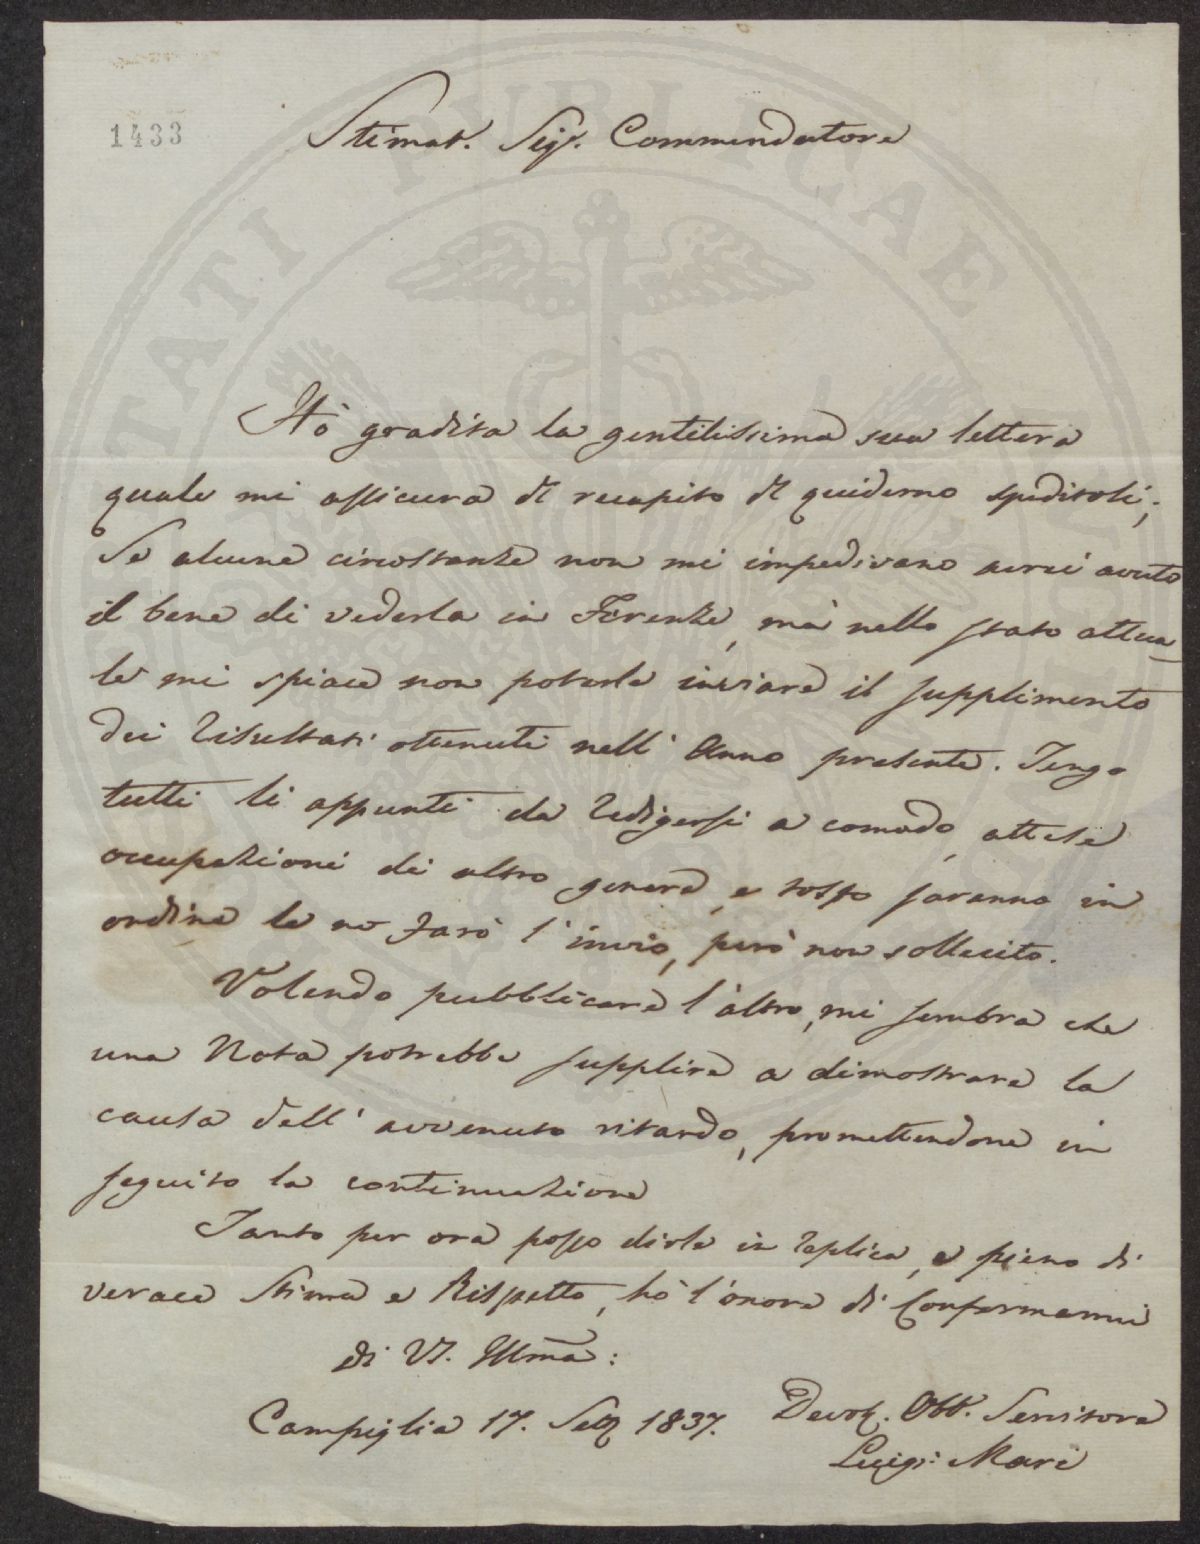 1433
Stimat. Sigr. Commendatore
Hò gradita la gentilissima sua lettera
quale mi assicura il recapito del quiderno speditoli;
Se alcune circostanze non mi impedivano avrei avuto
il bene di vederla in Firenze, mà nello stato attua-
le mi spiace non poterle inviare il supplimento
dei risultati ottenuti nell' Anno presente. Tengo
tutti li appunti da redigersi a comodo, attese
occupazioni di altro genere, e tosto saranno in
ordine le ne farò l'invio, però non sollecito.
Volendo pubblicare l'àltro, mi sembra che
una Nota potrebbe supplire a dimostrare la
causa dell' avvenuto ritardo, promettendone in
seguito la continuazione
Tanto per ora posso dirle in replica, e pieno di
verace stima e Rispetto, hò l'onore di Confermarmi
di VS. Illma:
Campiglia 17. Set 1837.
Devot. Obb. Servitore
Luigi Mari